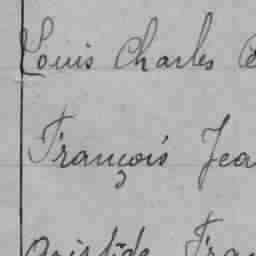 Louis Charles
François Jea
Aristide Fra